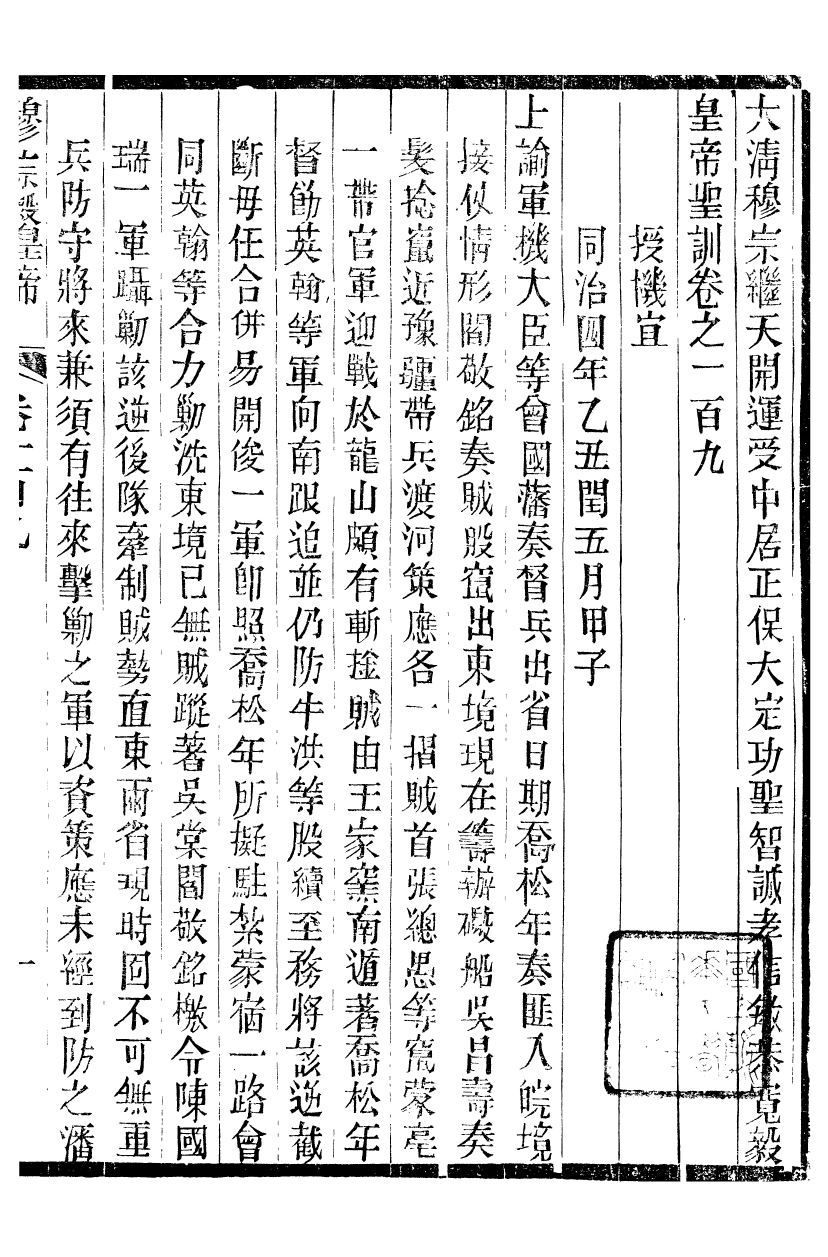 大淸穆宗繼天開運受中居正保大定功聖智誠孝信敏恭寬毅
皇帝聖訓卷之一百九
授機宜
同治四年乙丑閏五月甲子
上諭軍機大臣等曾國藩奏督兵出省日期喬松年奏匪入皖境
接仗情形閻敬銘奏賊股竄出東境現在籌辦礮船吳昌壽奏
髮捻竄近豫疆帶兵渡河策應各一摺賊首張總愚等竄蒙亳
一帶官軍迎戰於龍山頗有斬捦賊由王家窯南遁著喬松年
督飭英翰等軍向南跟追並仍防牛洪等股續至務將該逆截
斷毋任合併易開俊一軍卽照喬松年所擬駐紮蒙宿一路會
同英翰等合力勦洗東境已無賊蹤著吳棠閻敬銘檄令陳國
瑞一軍躡勦該逆後隊牽制賊勢直東兩省現時固不可無重
兵防守將來兼須有往來擊勦之軍以資策應未經到防之潘
穆宗毅皇帝 卷一百九 一